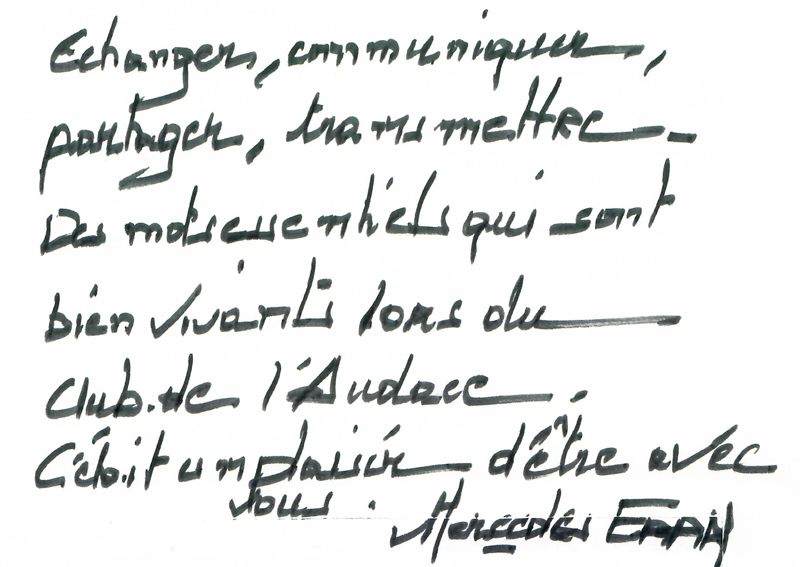 Echanger, communiquer,
partager, transmettre_
Des mots essentiels qui sont
bien vivants lors du
Club de l'Audace.
C'était un plaisir d'être avec
vous. Mercedes ERRA